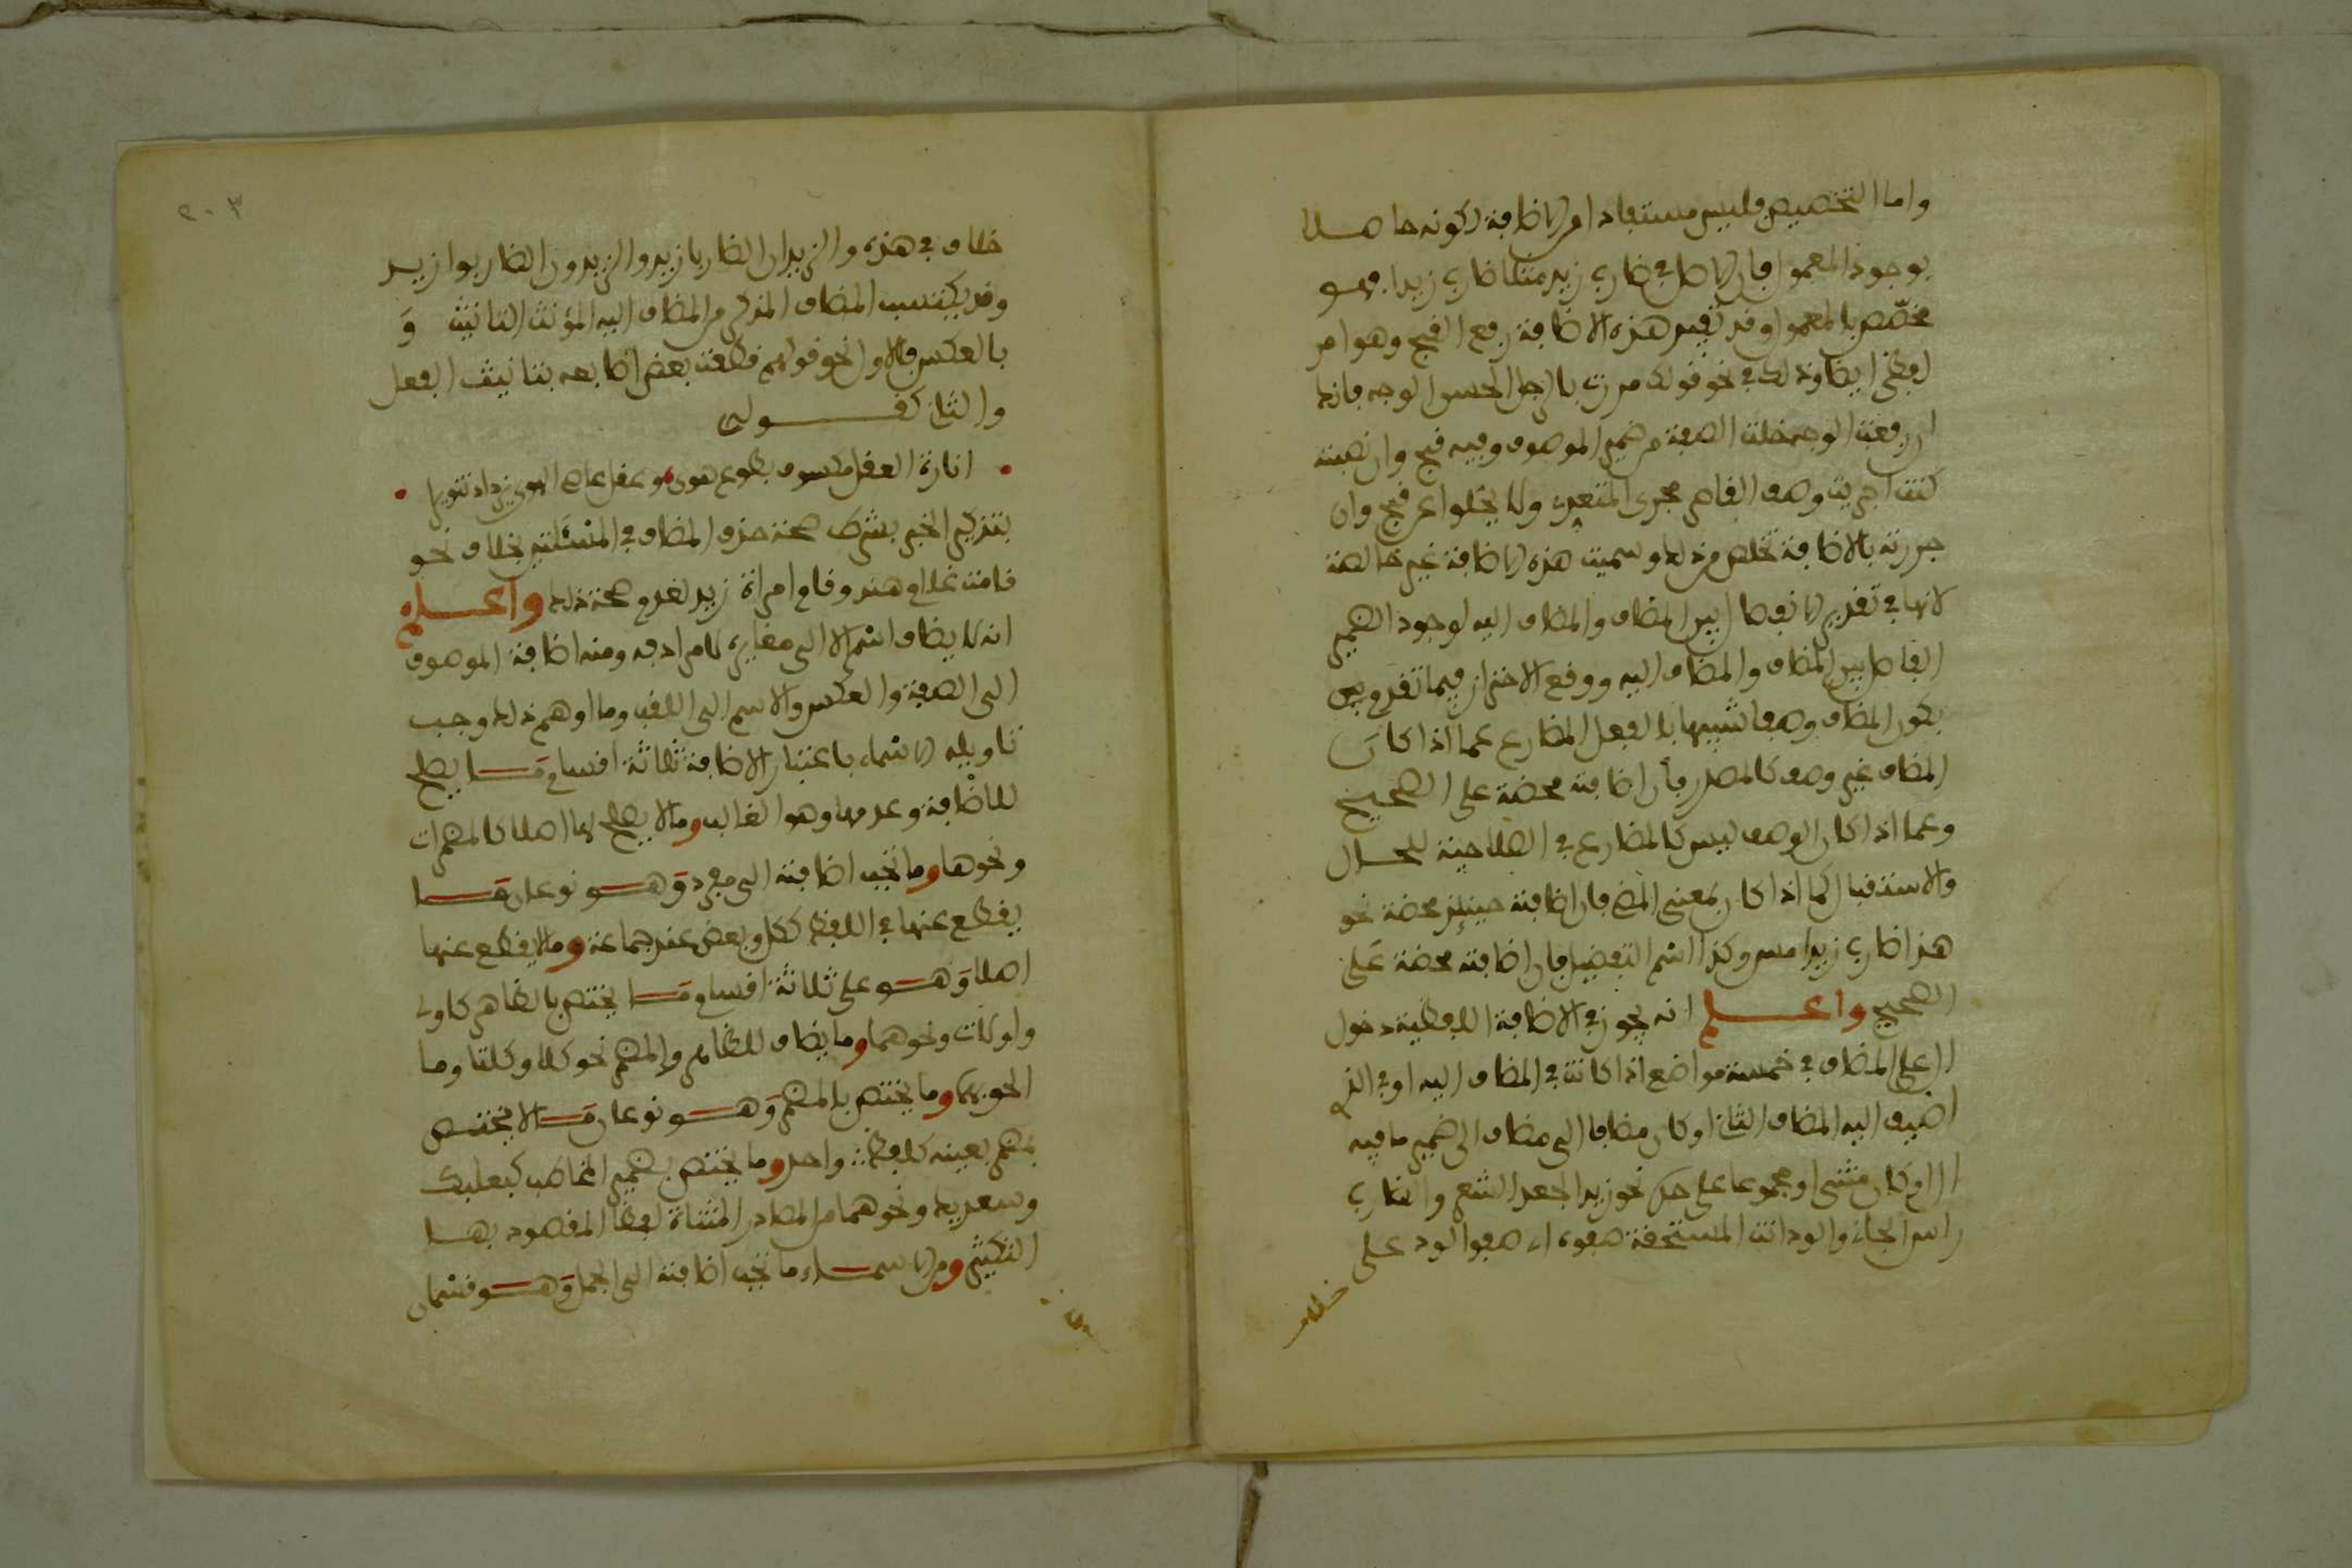 واما التخصيص فليس مستفادا من الاضافة لكونه حاصلا
بوجود المعمول فان الاصل في ضارب زيد مثلا ضارب زيدا فهو
مخصّص بالمعمول وقد تفيد هذه الاضافة رفع القبح وهو امر
لفظي ايضا وذلك في نحو قولك مررت بالرجل الحسن الوجه فانك
ان رفعت الوجه خلت الصفة من ضمير الموصوف وفيه قبح وان نصبته
كنت اجريت وصف القاصر مجرى المتعدي ولا يخلوا عن قبح وان
جررته بالاضافة تخلص من ذلك وسميت هذه الاضافة غير خالصة
لانها في تقدير الانفصال بين المضاف والمضاف اليه لوجود الضمير
الفاصل بين المضاف والمضاف اليه ووقع الاحتراز فيما تقدم من
كون المضاف وصفا شبيها بالفعل المضارع عما اذا كان
المضاف غير وصف كالمصدر فان اضافته محضة على الصحيح
وعما اذا كان الوصف ليس كالمضارع في الصلاحية للحال
والاستقبال كما اذا كان بمعنى المضي فان اضافته حينئذ محضة نحو
هذا ضارب زيد امس وكذا اسم التفضيل فان اضافته محضة على
الصحيح واعلم انه يجوز في الاضافة اللفظية دخول
ال على المضاف في خمسة مواضع اذا كانت في المضاف اليه او في الذي
اضيف اليه المضاف الثاني او كان مضافا الى مضاف الى ضمير ما فيه
ال او كان مثنى او مجموعا على حده نحو زيد الجعد الشعر والضارب
راس الجاني والود انت المستحقة صفوه اي صفو الود على
خلاف
خلاف في هذه والزيدان الضاربا زيد والزيدون الضاربوا زيد
وقد يكتسب المضاف المذكر من المضاف اليه المؤنث التانيث وَ
بالعكس فالاول نحو قولهم قطعت بعض اصابعه بتانيث الفعل
والثاني كقوله
انارة العقل مكسوف بطوع هوى وعقل عاصي الهوى يزداد تنويرا
بتذكير الخبر بشرط صحة حذف المضاف في المسئلتين بخلاف نحو
قامت غلام هند وقام امراة زيد لعدم صحة ذلك واعلم
انه لا يضاف اسم الا الى مغايره لا مرادفه ومنه اضافة الموصوف
الى الصفة والعكس والاسم الى اللقب وما اوهم ذلك وجب
تاويله الاسماء باعتبار الاضافة ثلاثة اقسام مَا يصلح
للاضافة وعدمها وهو الغالب وما لا يصلح لها اصلا كالمضمرات
ونحوها وما تجب اضافته الى مفرد وَهو نوعان مَا
يقطع عنها في اللفظ ككل وبعض عند جماعة وما لا يقطع عنها
اصلا وَهو على ثلاثة اقسام مَا يختص بالظاهر كاولي
واولات ونحوهما وما يضاف للظاهر والمضمر نحو كلا وكلتا وما
الحق بهما وما يختص بالمضمر وَهو نوعان مَا لا يختص
بمضمر بعينه كلفظ واحد وما يختص بضمير المخاطب كلبيك
وسعديك ونحوهما من المصادر المثناة لفظا المقصود بها
التكثير ومن الاسماء ما تجب اضافته الى الجمل وَهو قسمان
٢٠٣